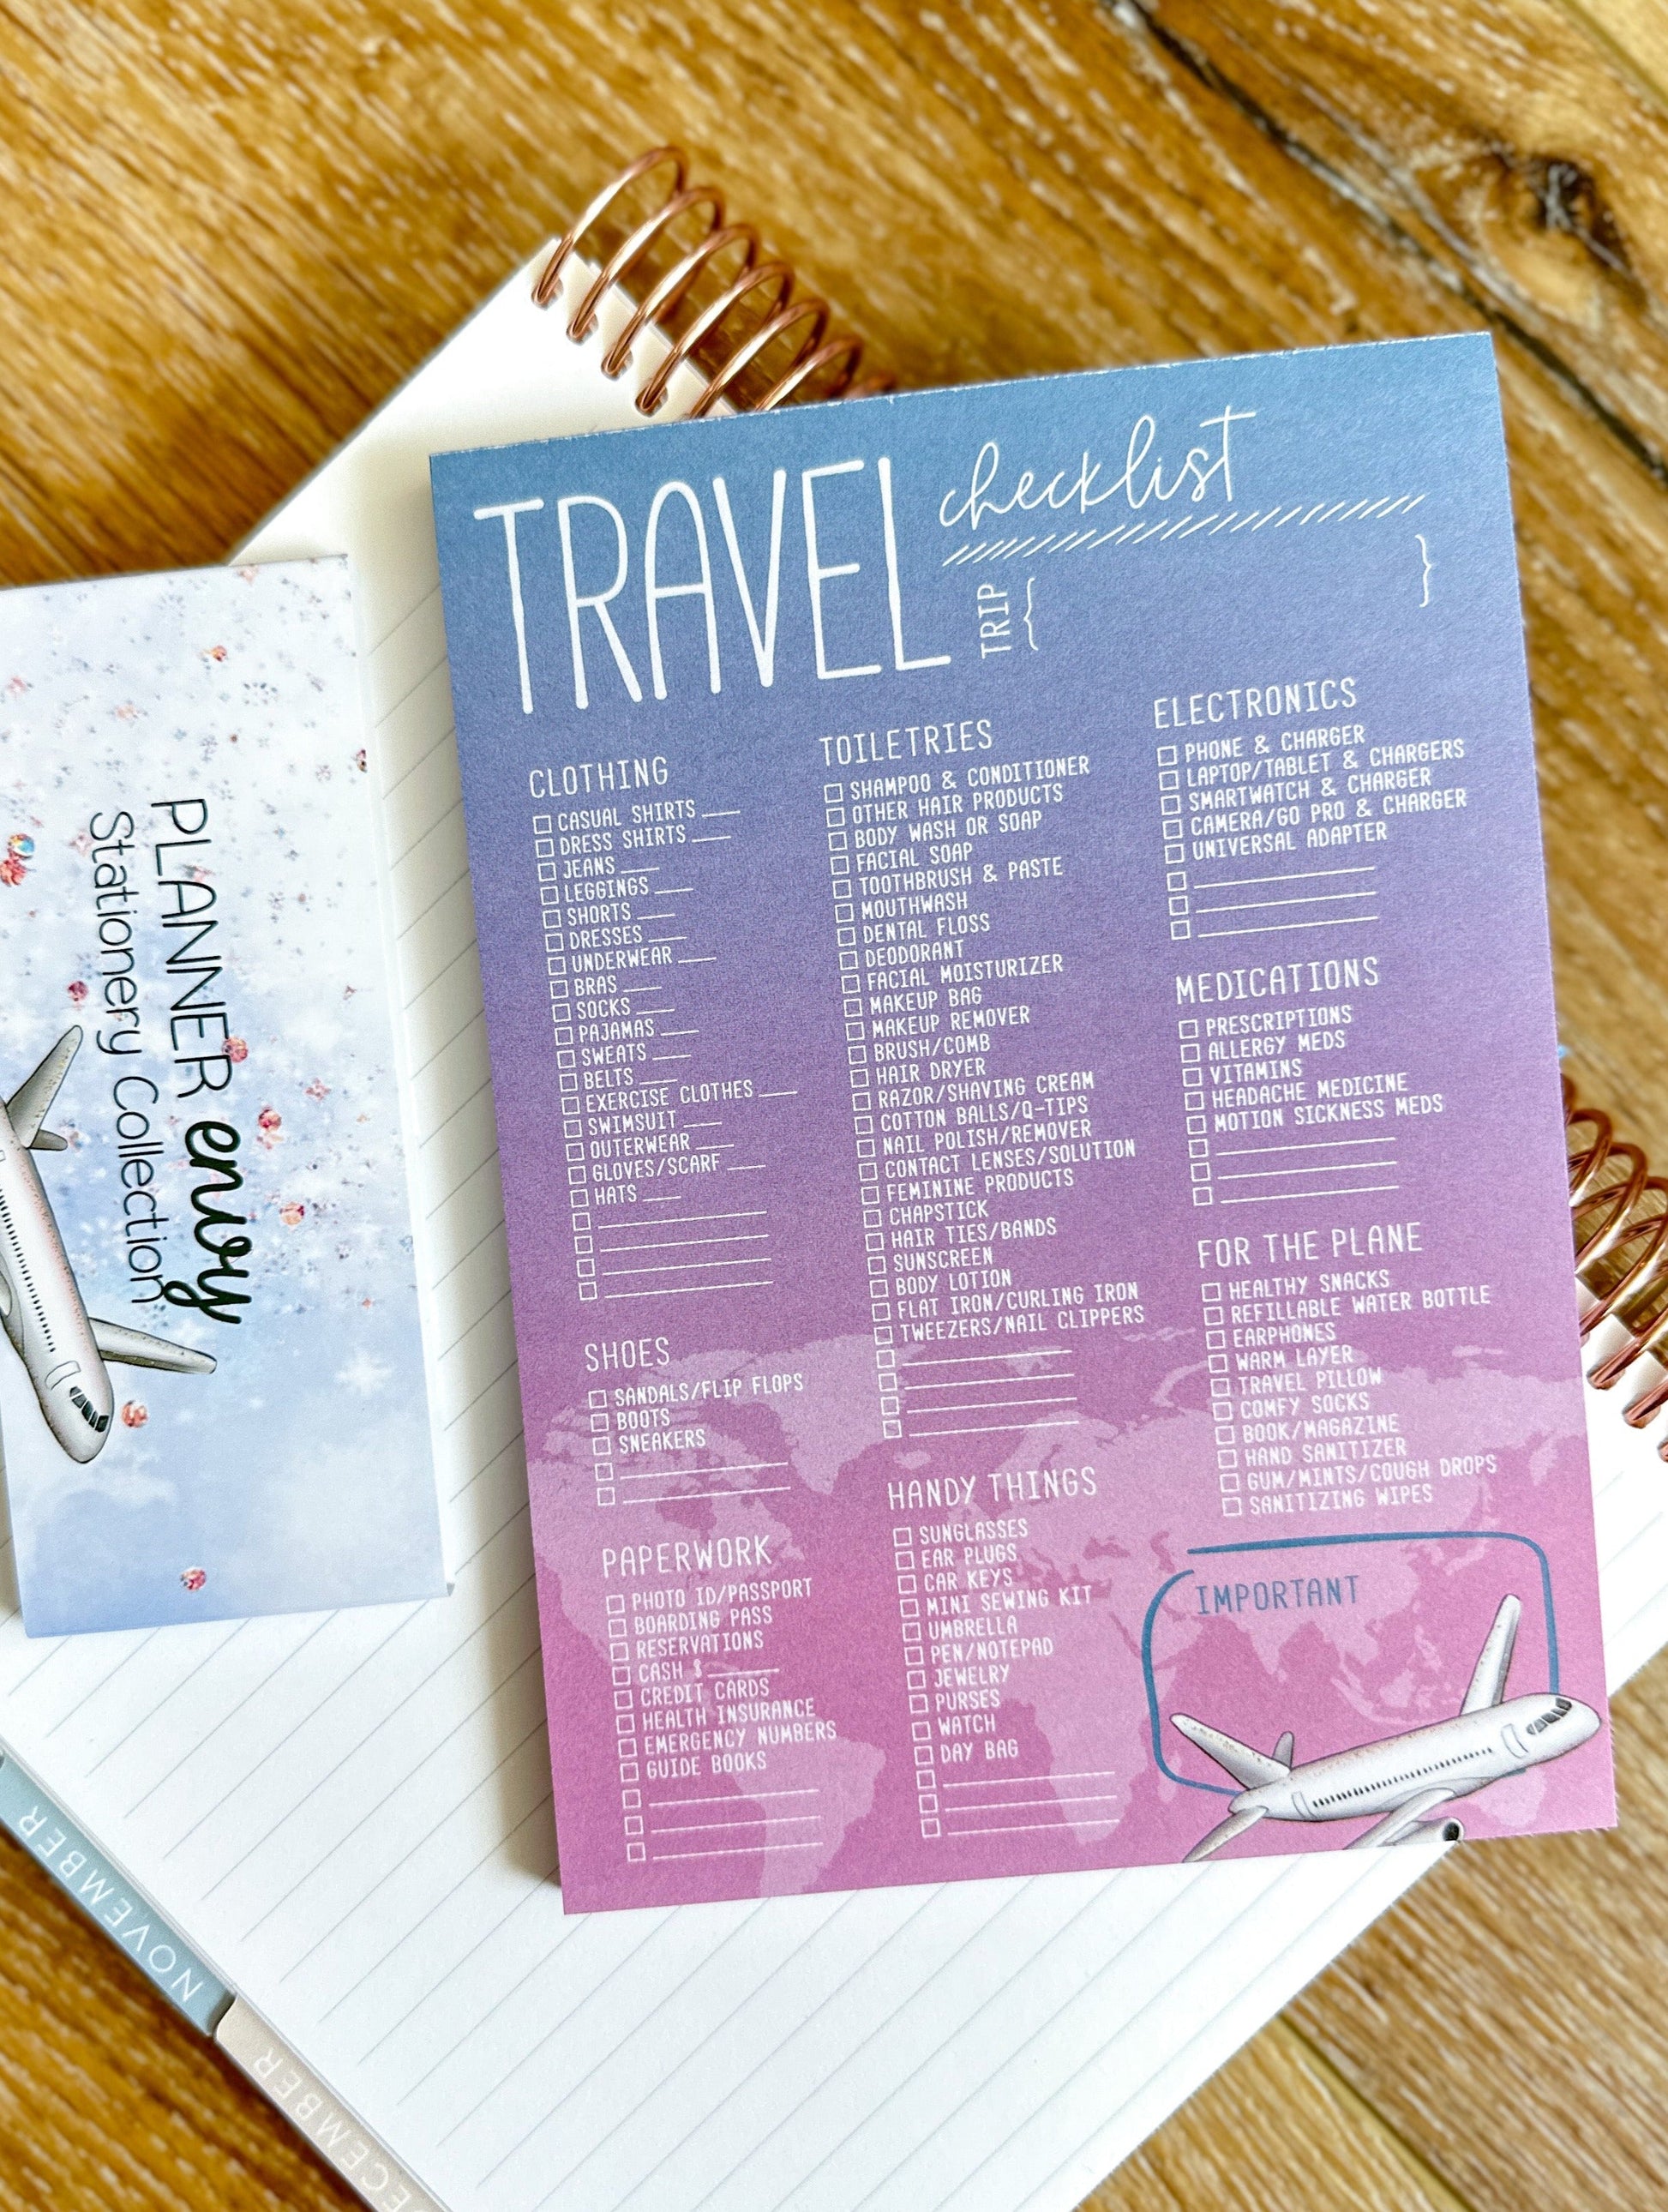 TRAVEL checklist
TRIP { }
CLOTHING
CASUAL SHIRTS
DRESS SHIRTS
JEANS
LEGGINGS
SHORTS
DRESSES
UNDERWEAR
BRAS
SOCKS
PAJAMAS
SWEATS
BELTS
EXERCISE CLOTHES
SWIMSUIT
OUTERWEAR
GLOVES/SCARF
HATS
SHOES
SANDALS/FLIP FLOPS
BOOTS
SNEAKERS
PAPERWORK
PHOTO ID/PASSPORT
BOARDING PASS
RESERVATIONS
CASH $
CREDIT CARDS
HEALTH INSURANCE
EMERGENCY NUMBERS
GUIDE BOOKS
TOILETRIES
SHAMPOO & CONDITIONER
OTHER HAIR PRODUCTS
BODY WASH OR SOAP
FACIAL SOAP
TOOTHBRUSH & PASTE
MOUTHWASH
DENTAL FLOSS
DEODORANT
FACIAL MOISTURIZER
MAKEUP BAG
MAKEUP REMOVER
BRUSH/COMB
HAIR DRYER
RAZOR/SHAVING CREAM
COTTON BALLS/Q-TIPS
NAIL POLISH/REMOVER
CONTACT LENSES/SOLUTION
FEMININE PRODUCTS
CHAPSTICK
HAIR TIES/BANDS
SUNSCREEN
BODY LOTION
FLAT IRON/CURLING IRON
TWEEZERS/NAIL CLIPPERS
HANDY THINGS
SUNGLASSES
EAR PLUGS
CAR KEYS
MINI SEWING KIT
UMBRELLA
PEN/NOTEPAD
JEWELRY
PURSES
WATCH
DAY BAG
ELECTRONICS
PHONE & CHARGER
LAPTOP/TABLET & CHARGERS
SMARTWATCH & CHARGER
CAMERA/GO PRO & CHARGER
UNIVERSAL ADAPTER
MEDICATIONS
PRESCRIPTIONS
ALLERGY MEDS
VITAMINS
HEADACHE MEDICINE
MOTION SICKNESS MEDS
FOR THE PLANE
HEALTHY SNACKS
REFILLABLE WATER BOTTLE
EARPHONES
WARM LAYER
TRAVEL PILLOW
COMFY SOCKS
BOOK/MAGAZINE
HAND SANITIZER
GUM/MINTS/COUGH DROPS
SANITIZING WIPES
IMPORTANT
PLANNER envy
Stationery Collection
NOVEMBER
ECEMBER